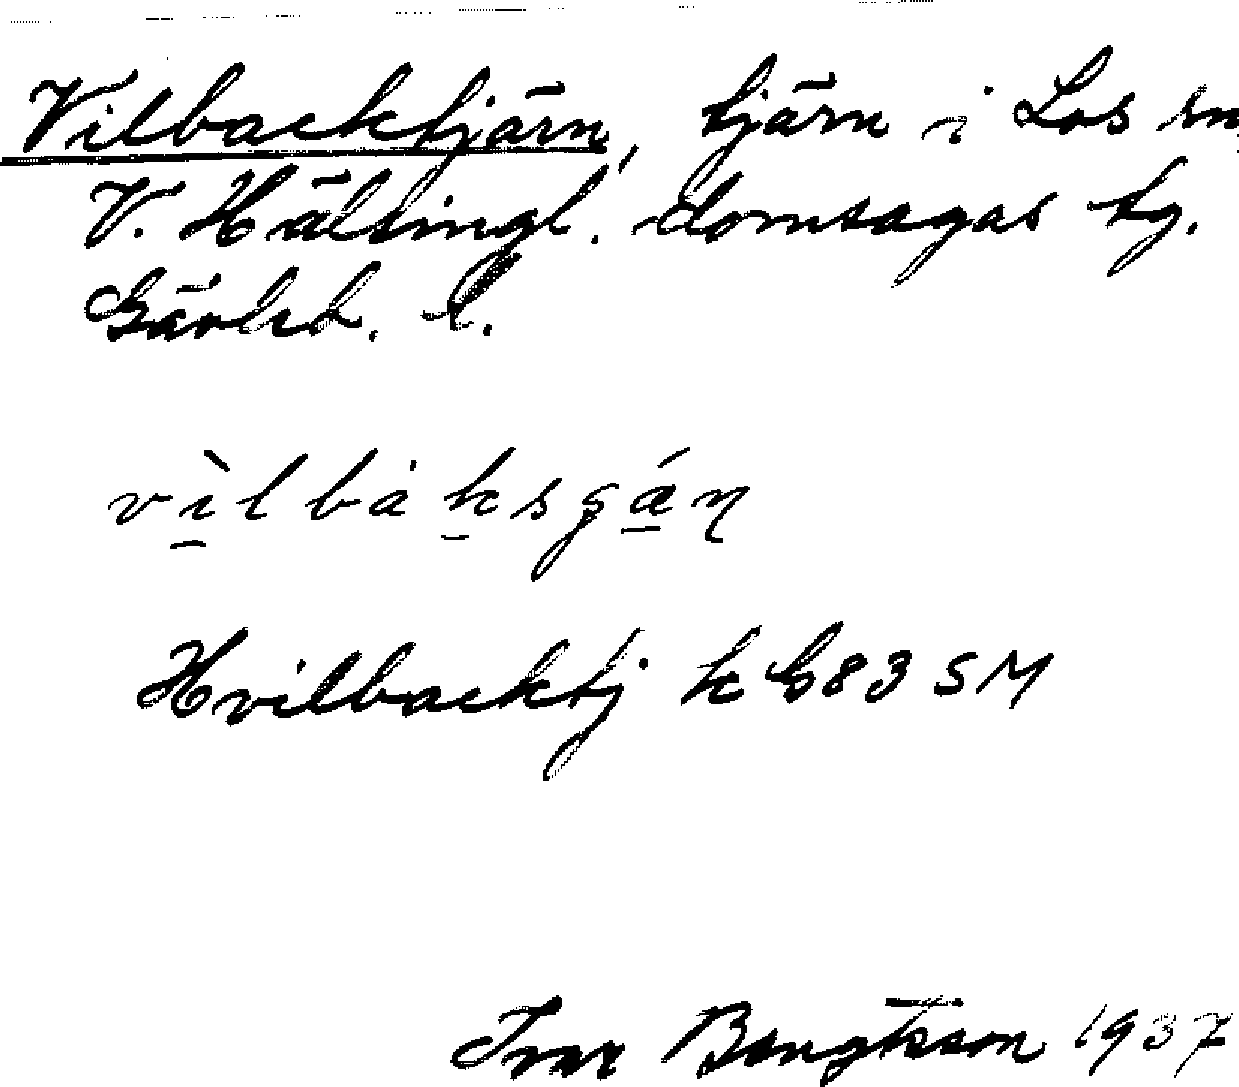 Vilbacktjärn, tjärn i Los sn,
V. Hälsingl. domsagas tg.
Gävleb. l.
vìlbàksgán
Hvilbacktj k G83 SM
Ivar Bengtsson 1937